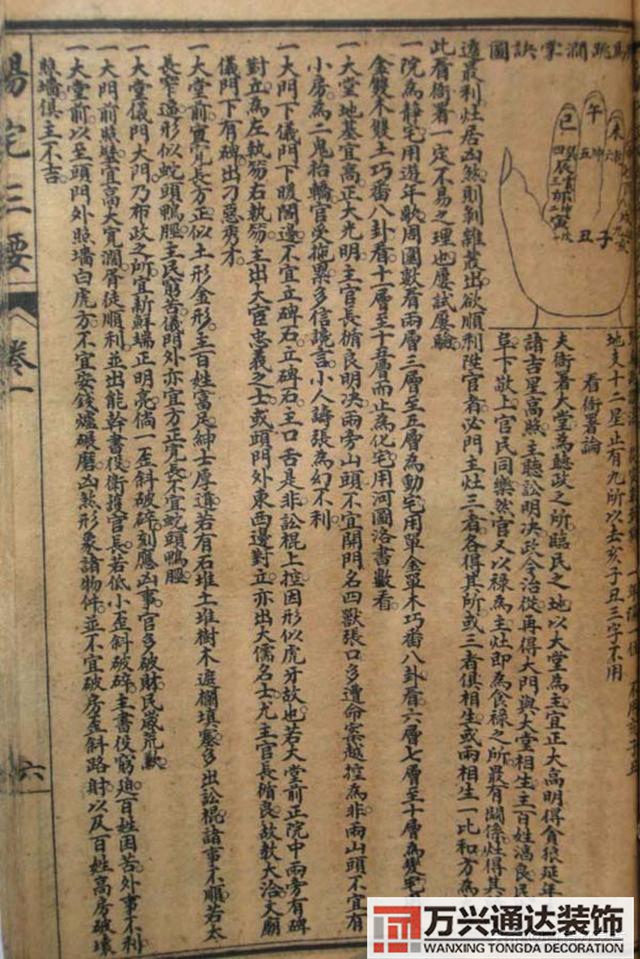 馬跳澗掌訣圖
午
未
巳
丑
子
地支十二星止有九所以去亥子丑三字不用
看衙署論
夫衙署大堂為聽政之所臨民之地以大堂為主宜正大高明得貪狼延年
諸吉星高照主聽訟明决政令治從再得大門與大堂相生主百姓漓良民
阜下敬上官民同樂然官又以祿為主灶即為食祿之所最有關係灶得其
遠嚴利灶居凶煞則剥雜叢出欲順利陞官者必門主灶三者各得其所或三者俱相生或兩相生一比和方為
此看衙署一定不易之理也屢試屢驗
一院為静宅用遊年歌周圍數看兩層三層至五層為動宅用單金單木巧番八卦看六層七層至十層為變宅
金雙木雙土巧番八卦看十一層至十五層而止為化宅用河圖洛書數看
一大堂地基宜高正大光明主官長循良明决兩旁山頭不宜開門名四獸張口多遭命案越控為非兩山頭不宜有
小房為二鬼抬轎官受拖累多信讒言小人譸張為幻不利
一大門下儀門下暖閣邊不宜立碑石立碑石主口舌是非訟棍上控因形似虎牙故也若大堂前正院中兩旁有碑
對立為左執笏右執笏主出大官忠義之士或頭門外東西邊對立亦出大儒名士尤主官長循良故教大洽文廟
儀門下有碑出刁惡秀才
一大堂前寬宜長方正似土形金形主百姓富足紳士厚道若有石堆土堆樹木遮欄填塞多出訟棍諸事不順若太
長窄邊形似蛇頭鴨脰主民窮苦儀門外亦宜方正寬長不宜蛇頭鴨脰
一大堂儀門大門乃布政之所宜新鮮端正明亮倘一歪斜破碎刻應凶事官多破財民歲荒歉
一大門前照墻宜高大寬濶胥徒順利並出能幹書役衛護官長若低小歪斜破碎主書役窮迫百姓困苦外事不利
一大堂前以至頭門外照墻白虎方不宜安錢爐碾磨凶煞形象諸物件並不宜破房歪斜路射以及百姓高房破壞
照墻俱主不吉
陽宅三要
卷一
六
万兴通达装饰
WANXING TONGDA DECORATION